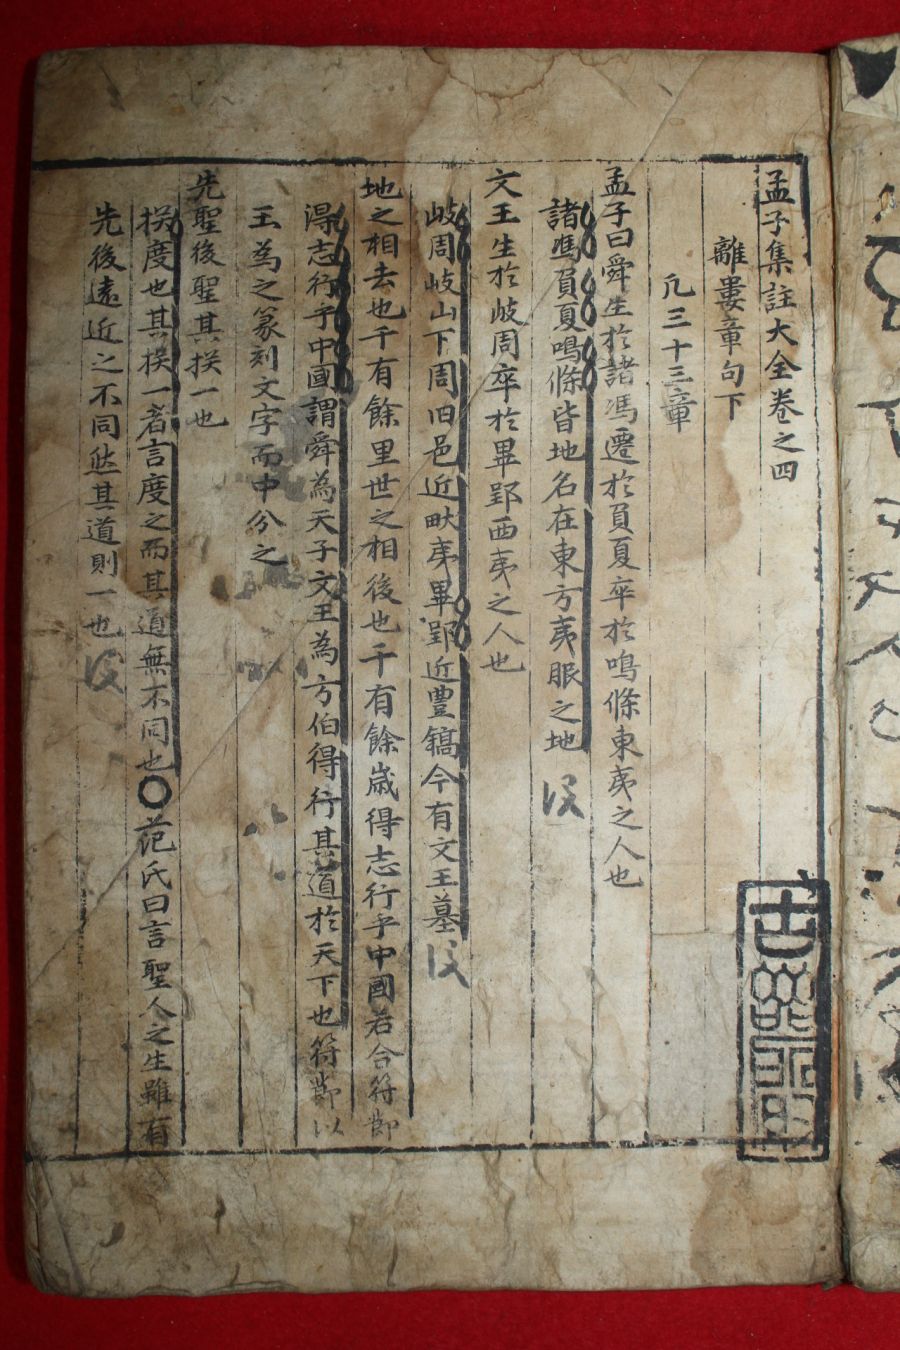 孟子集註大全卷之四
離婁章句下
凡三十三章
孟子曰舜生於諸馮遷於負夏卒於鳴條東夷之人也
諸馮負夏鳴條皆地名在東方夷服之地
文王生於岐周卒於畢郢西夷之人也
岐周岐山下周旧邑近畎夷畢郢近豊鎬今有文王墓
地之相去也千有餘里世之相後也千有餘歲得志行乎中國若合符節
得志行乎中國謂舜為天子文王為方伯得行其道於天下也符節以
玉為之篆刻文字而中分之
先聖後聖其揆一也
揆度也其揆一者言度之而其道無不同也〇范氏曰言聖人之生雖有
先後遠近之不同然其道則一也